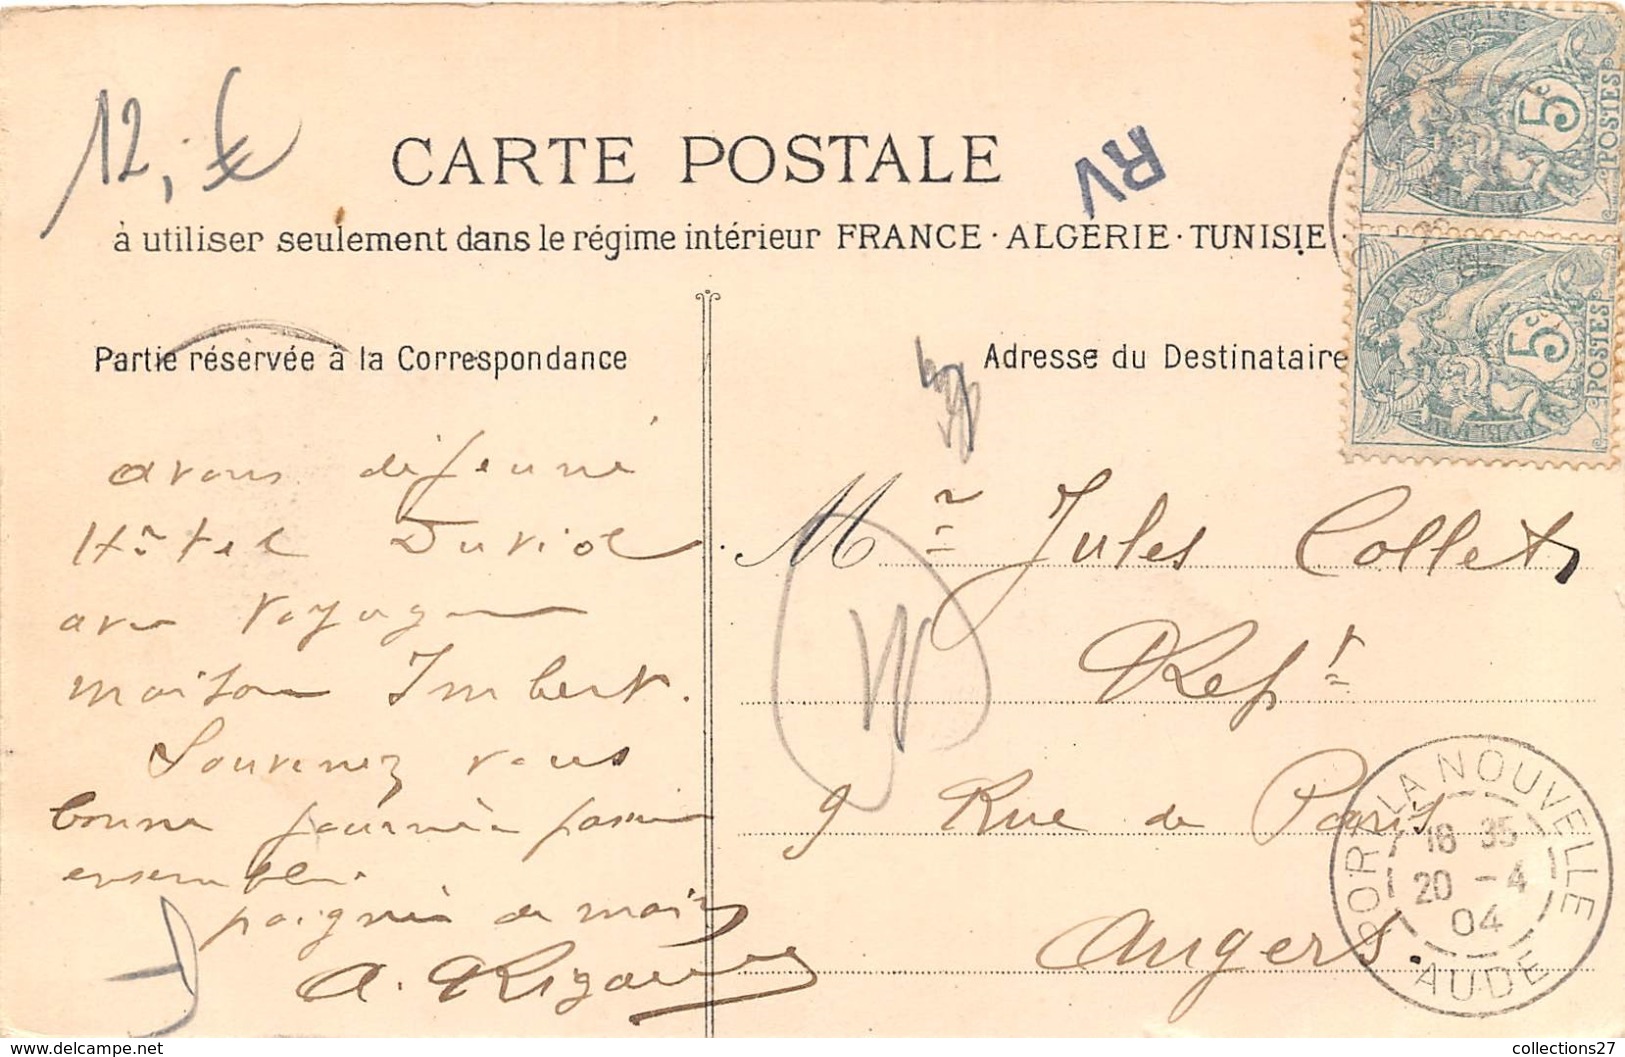 12,
CARTE POSTALE
RV
à utiliser seulement dans le régime intérieur FRANCE · ALGÉRIE · TUNISIE
Partie réservée à la Correspondance
avons déjeuné
Hôtel Duriol
avec Voyageur
maison Imbert.
Souvenez vous
bonne journée passée
ensemble.
poignée de main
Adresse du Destinataire
Mr Jules Collet
Rept
9 Rue de Paris
Angers.
FRANÇAISE
5c
POSTES
FRANÇAISE
5c
POSTES
PORT LA NOUVELLE
18 35
20 -4
04
AUDE
https://www.delcampe.net
collections27